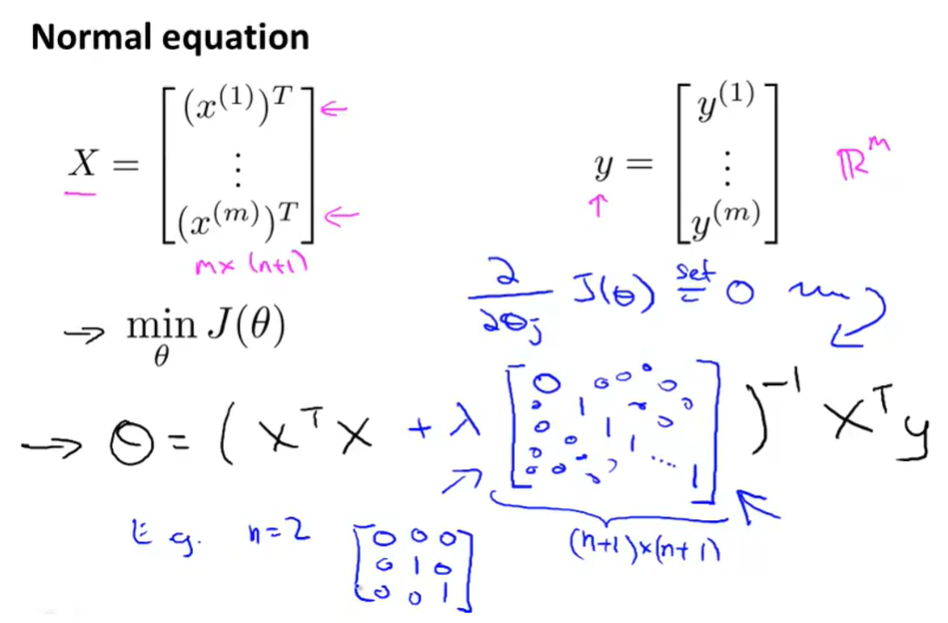 Normal equation
X = [ (x^(1))^T ⋮ (x^(m))^T ] ← ←
m x (n+1)
y = [ y^(1) ⋮ y^(m) ] ℝ^m
↑
→ min_θ J(θ)
∂/∂θ_j J(θ) set = 0
→ θ = ( X^T X + λ [ 0 0 0 0 0 0 1 0 0 0 1 0 0 1 0 0 0 0 .... 1 ] )^-1 X^T y
(n+1)x(n+1)
E.g. n=2 [ 0 0 0
0 1 0
0 0 1 ]